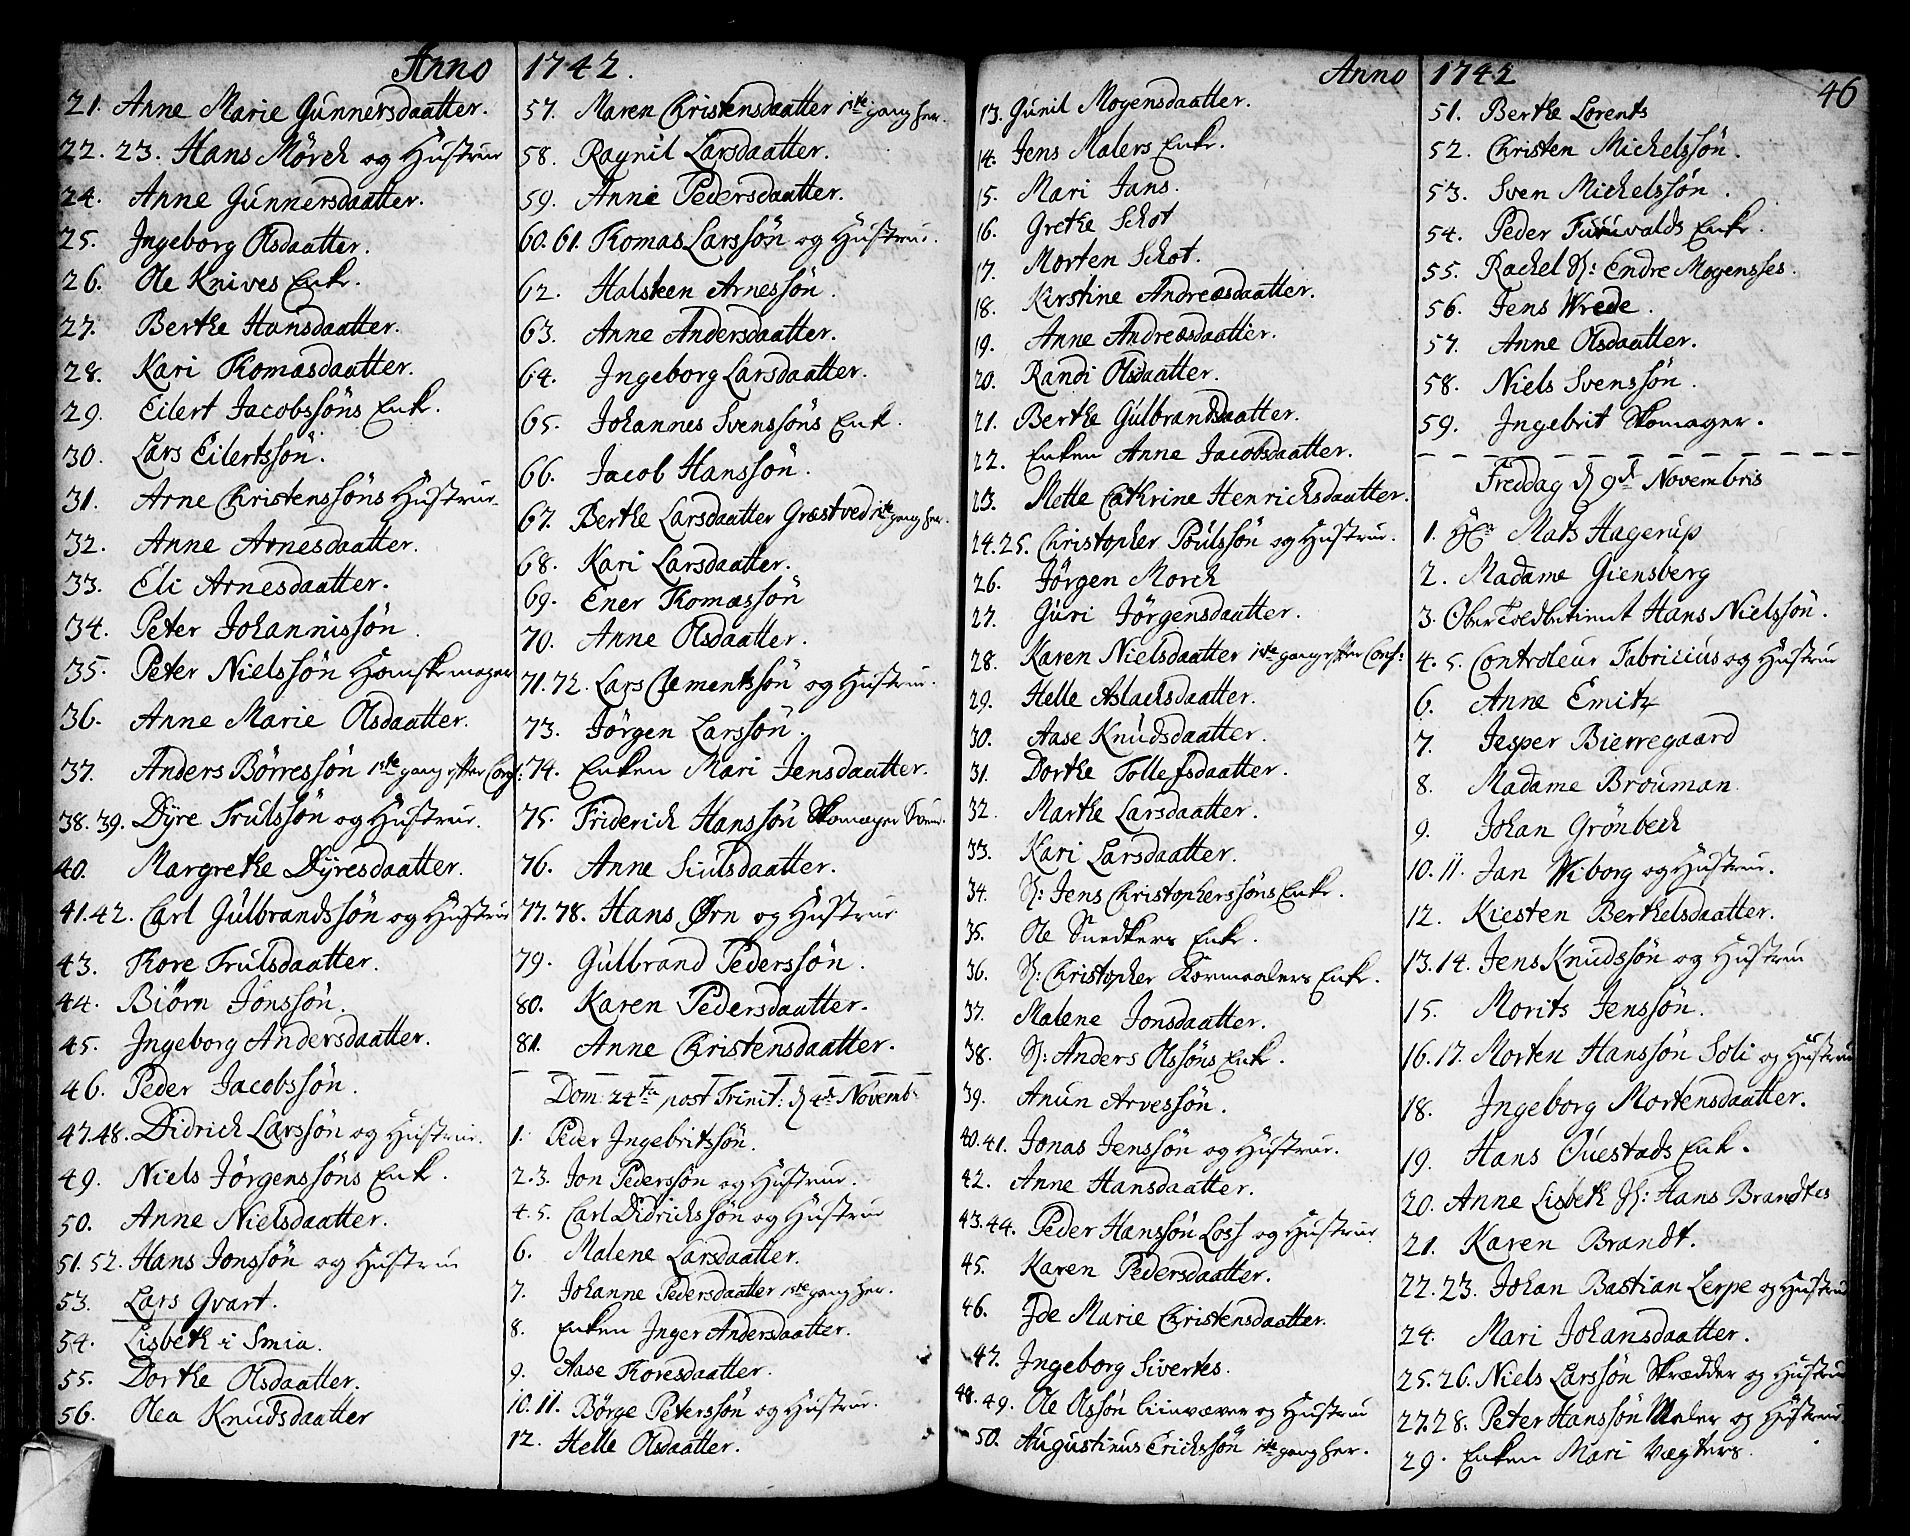 Anno 1742.
21. Anne Marie Gunnersdaatter.
22. 23. Hans Mörch og Hustrue
24. Anne Gunnersdaatter.
25. Ingeborg Olsdaatter.
26. Ole Knives Enke.
27. Berthe Hansdaatter.
28. Kari Thomasdaatter.
29. Eilert Jacobssöns Enke.
30. Lars Eilertssön.
31. Arne Christenssöns Hustrue
32. Anne Arnesdaatter.
33. Eli Arnesdaatter.
34. Peter Johannissön
35. Peter Nielssön Handskemager
36. Anne Marie Olsdaatter.
37. Anders Börressön 1ste gang efter Conf:
38. 39. Dÿre Trulssön og Hustrue.
40. Margrethe Dÿresdaatter.
41. 42. Carl Gulbrandssön og Hustrue
43. Thore Trulsdaatter.
44. Biörn Jonssön.
45. Ingeborg Andersdaatter.
46. Peder Jacobssön.
47. 48. Didrich Larssön og Hustrue.
49. Niels Jörgenssöns Enke.
50. Anne Nielsdaatter.
51. 52. Hans Jonssön og Hustrue
53. Lars Qvart.
54. Lisbeth i Smia.
55. Dorthe Olsdaatter.
56. Olea Knudsdaatter
57. Maren Christensdaatter 1ste gang her.
58. Ragnil Larsdaatter.
59. Anne Pedersdaatter.
60. 61. Thomas Larssön og Hustrue.
62. Halsteen Arnessön.
63. Anne Andersdaatter.
64. Ingeborg Larsdaatter.
65. Johannes Svenssöns Enk.
66. Jacob Hanssön.
67. Berthe Larsdaatter Græstved 1ste gang her.
68. Kari Larsdaatter.
69. Ener Thomassön
70. Anne Olsdaatter.
71. 72. Lars Clementssön og Hustrue.
73. Jörgen Larssön.
74. Enken Mari Jensdaatter.
75. Friderich Hanssön Skomager Svend.
76. Anne Siulsdaatter.
77. 78. Hans Ørn og Hustrue
79. Gulbrand Pederssön.
80. Karen Pedersdaatter.
81. Anne Christensdaatter.
Dom: 24te post Trinit: d 4de Novemb:
1. Peder Ingebritssön.
2. 3. Jon Pederssön og Hustrue.
4. 5. Carl Didrichssön og Hustrue
6. Malene Larsdaatter.
7. Johanne Pedersdaatter 1ste gang her.
8. Enken Inger Andersdaatter.
9. Aase Thoresdaatter.
10. 11. Börge Peterssön og Hustrue.
12. Helle Olsdaatter.
Anno 1742
46
13. Gunil Mogensdaatter.
14. Jens Malers Enke.
15. Mari Jans.
16. Grethe Schot
17. Morten Schot.
18. Kirstine Andreæsdaatter.
19. Anne Andreæsdaatter.
20. Randi Olsdaatter.
21. Berthe Gulbrandsdaatter.
22. Enken Anne Jacobsdaatter.
23. Mette Cathrine Henrichsdaatter.
24. 25. Christopher Poulssön og Hustrue.
26. Jörgen Morch
27. Guri Jörgensdaatter.
28. Karen Nielsdaatter 1ste gang efter Conf:
29. Helle Aslachsdaatter.
30. Aase Knudsdaatter.
31. Dorthe Tollefsdaatter.
32. Marthe Larsdaatter.
33. Kari Larsdaatter.
34. S: Jens Christopherssöns Enke.
35. Ole Snedkers Enke.
36. S: Christopher Kornmaalers Enke.
37. Malene Jonsdaatter.
38. S: Anders Olssöns Enke.
39. Anun Arvessön.
40. 41. Jonas Jenssön og Hustrue.
42. Anne Hansdaatter.
43. 44. Peder Hanssön Loss og Hustrue
45. Karen Pedersdaatter.
46. Ide Marie Christensdaatter.
47. Ingeborg Siverths.
48. 49. Ole Olssön Linnvæver og Hustrue
50. Augustinus Erichssön 1ste gang her.
51. Berthe Lorents
52. Christen Michelssön.
53. Sven Michelssön.
54. Peder Furuvalds Enke.
55. Rachel S: Endre Mogenses.
56. Jens Wrede.
57. Anne Olsdaatter.
58. Niels Svenssön.
59. Ingebrit Skomager.
Freddag d 9de Novembris
1. Hr Mats Hagerup
2. Madame Giensberg
3. OberToldbetient Hans Nielssön.
4. 5. Controleur Fabricius og Hustrue
6. Anne Emitz
7. Jesper Bierregaard
8. Madame Brouman
9. Johan Grönbech
10. 11. Jan Wiborg og Hustrue.
12. Kiesten Berthelsdaatter.
13. 14. Jens Knudssön og Hustrue
15. Morits Jenssön.
16. 17. Morten Hanssön Soli og Hustrue
18. Ingeborg Mortensdaatter.
19. Hans Ouestads Enk.
20. Anne Lisbeth S: Hans Brandtes
21. Karen Brandt.
22. 23. Johan Bastian Lerpe og Hustrue
24. Mari Johansdaatter.
25. 26. Niels Larssön Skrædder og Hustrue
27. 28. Peter Hanssön Maler og Hustrue
29. Enken Mari Vægters.